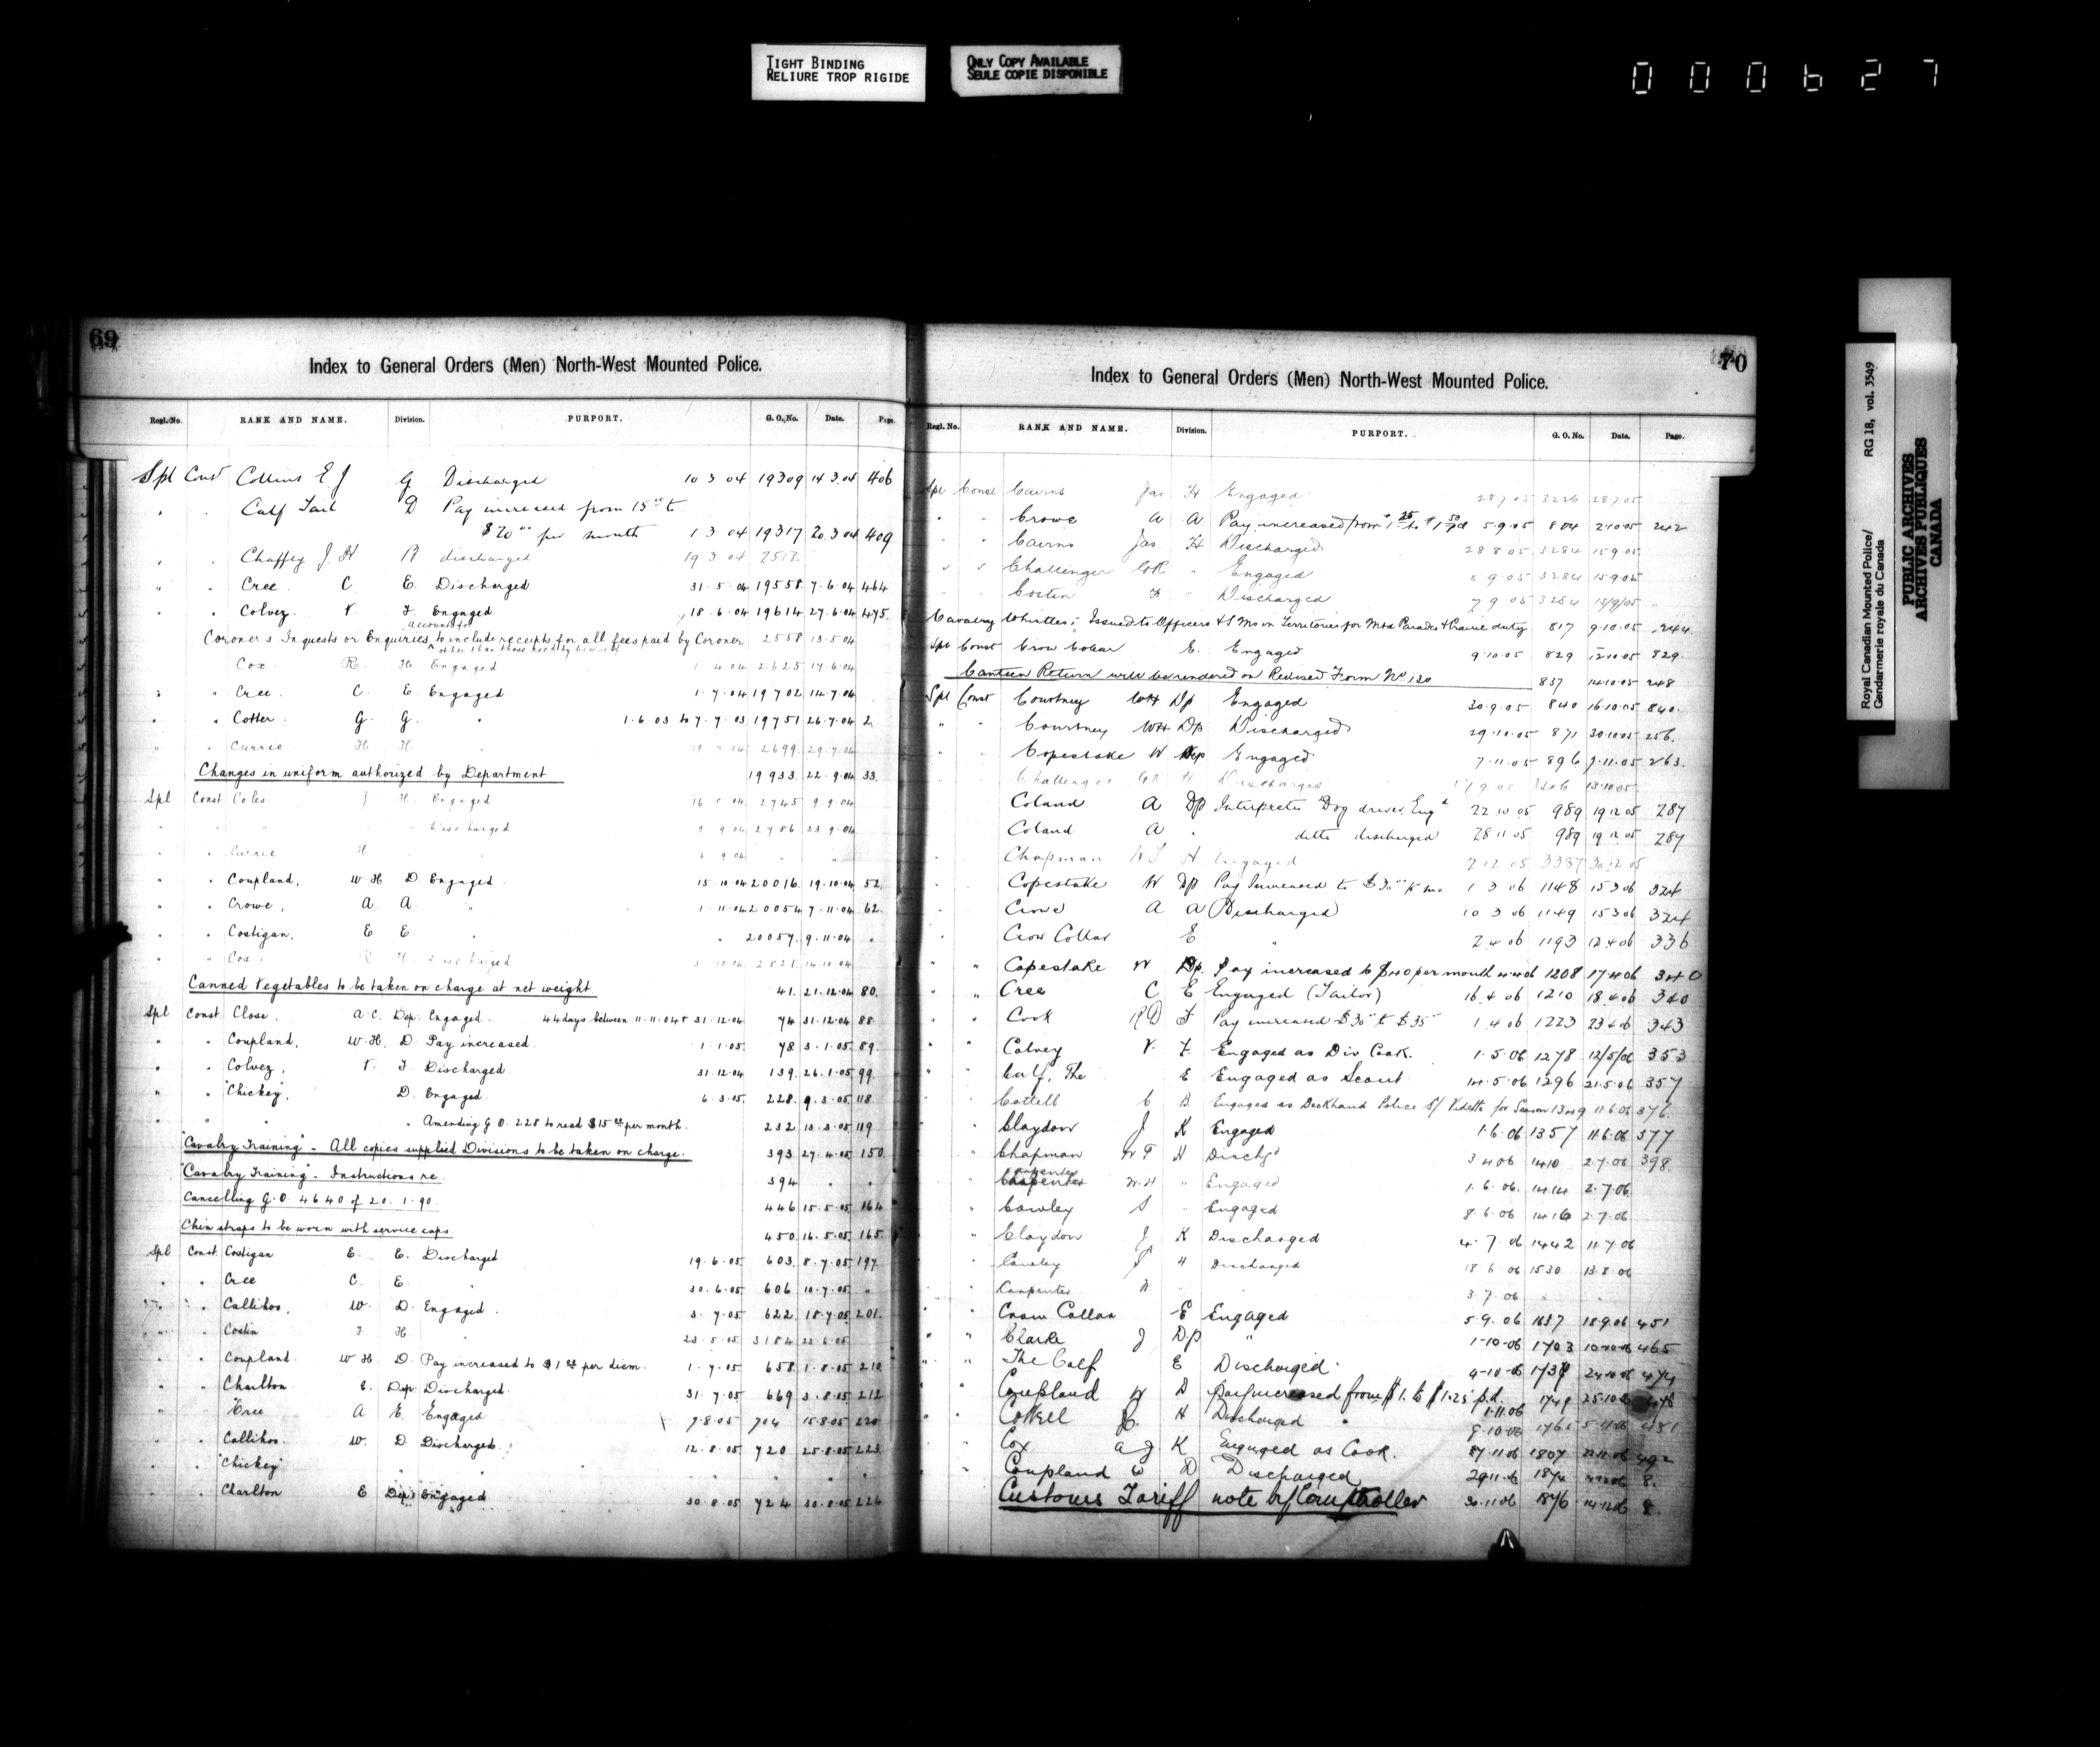 TIGHT BINDING
RELIURE TROP RIGIDE
ONLY COPY AVAILABLE
SEULE COPIE DISPONIBLE
000627
69
Index to General Orders (Men) North-West Mounted Police.
Regl. No. RANK AND NAME. Division. PURPORT. G. O. No. Date. Page.
Spl Const Collins E J G Discharged 10 3 04 19309 14 3 04 406
" " Calf Tail D Pay increased from 15 00 to
$20 00 per month 1 3 04 19317 20 3 04 409
" " Chaffey J. H A discharged 19 3 04 2512
" " Cree C. E. Discharged 31.5.04 19558 7.6.04 464
" " Colvez. V. F. Engaged 18.6.04 19614 27.6.04 475
Coroner's Inquests or Enquiries, accounts for to include receipts for all fees paid by Coroner 2558 13.5.04
other than those held by himself
Cox R. H Engaged 1 4 04 2625 17.6.04
" " Cree. C. E. Engaged 1.7.04 19702 14.7.04
" " Cotter G. G. " 1.6 03 to 7.7.03 19751 26.7.04 2
" " Currie H H " 19 7 04 2699 29.7.04
Changes in uniform authorized by Department 19933. 22.9.04 33.
Spl Const. Coles J H. Engaged 16 8 04 2745 9.9.04
" " " Discharged 9 9 04 2786 23.9.04
" " Currie H " 6 9 04 " "
" " Coupland, W H D Engaged 15 10 04 20016 19.10.04 52
" " Crowe, A A " 1.11.04 20054 7.11.04 62
" " Costigan, E E " " 20057 9.11.04 "
" " Cox R H. Discharged 10 04 2821 14.10.04
Canned Vegetables to be taken on charge at net weight 41. 21.12.04 80.
Spl Const. Close, A.C. Dep. Engaged. 44 days between 11.11.04 & 31.12.04 74 31.12.04 88
" " Coupland, W.H. D. Pay increased. 1.1.05 78 3.1.05 89.
" " Colvez, V. F. Discharged 31.12.04 139. 26.1.05 99.
" " "Chickey", D. Engaged. 6.3.05 228. 9.3.05 118
" " " Amending G.O. 228 to read $15 00 per month. 232 13.3.05 119
"Cavalry Training" - All copies supplied Divisions to be taken on charge. 393 27.4.05 150
"Cavalry Training". Instructions re 394 " "
Cancelling G.O. 4640 of 20.1.90. 446 15.5.05 164
Chin straps to be worn with service caps 450 16.5.05 165
Spl Const. Costigan E. E. Discharged 19.6.05 603 8.7.05 197
" " Cree C. E. " 30.6.05 606 10.7.05 "
" " Callihoo, W. D. Engaged. 3.7.05 622 18.7.05 201
" " Costin F H " 23.5.05 3184 22.6.05
" " Coupland. W H D. Pay increased to $1 00 per diem. 1.7.05 658 1.8.05 210
" " Charlton E. Dep. Discharged. 31.7.05 669 3.8.05 212
" " Cree A E. Engaged 7.8.05 704 15.8.05 220
" " Callihoo. W. D. Discharged. 12.8.05 720 25.8.05 223
" " "Chickey" " " " " " "
" " Charlton E Dep. Engaged 30.8.05 724 30.8.05 224
70
Index to General Orders (Men) North-West Mounted Police.
Regl. No. RANK AND NAME. Division. PURPORT. G. O. No. Date. Page.
Spl Const Cairns Jas H Engaged 28 7 05 3226 28.7.05
" " Crowe A A Pay increased from $1 25 to $1 50 pd 5.9.05 804 2.10.05 242
" " Cairns Jas H Discharged 28 8 05 3284 15 9 05
" " Challenger GR " Engaged 8 9 05 3284 15.9.05
Costin H " Discharged 7 9 05 3284 15/9/05
Cavalry Whistles; Issued to Officers & S Ms in Territories for Mtd Parades & Prairie duty 817 9.10.05 244
Spl Const Crow Collar E. Engaged 9.10.05 829 12.10.05 829
Canteen Return will be rendered on Revised Form No 120 837 14.10.05 248
Spl Const Courtney WH Dp Engaged 30.9.05 840 16.10.05 840.
" " Courtney WH Dp Discharged 29.10.05 871 30.10.05 256.
" " Copestake W Dep Engaged 7.11.05 896 9.11.05 263.
Challenger GR H Discharged 17 9 05 3206 13.10.05
Coland A Dp Interpreter Dog driver Eng d 22 10 05 989 19 12 05 287
Coland A " ditto discharged 28 11 05 989 19 12 05 287
Chapman W T H Engaged 2 12 05 3387 30 12 05
Copestake W Dp Pay Increased to $30 00 p mo 1 3 06 1148 15 3 06 324
Crowe A A Discharged 10 3 06 1149 15 3 06 324
Crow Collar E " 2 4 06 1193 12 4 06 336
" " Copestake W Dp. Pay increased to $40 per month 4 4 06 1208 17 4 06 340
" " Cree C E Engaged (Tailor) 16 4 06 1210 18 4 06 340
" " Cook RD F Pay increased $30 00 to $35 00 1 4 06 1223 23 4 06 343
" " Colvey V. F. Engaged as Div Cook. 1.5.06 1278 12/5/06 353
" " Calf, The E Engaged as Scout 14.5.06 1296 21.5.06 357
" " Cottell C B. Engaged as Deckhand Police S/ Vidette for Season 1349 11.6.06 376.
" Claydon J K Engaged 1.6.06 1357 11.6.06 377
" Chapman W T H Dischgd 3 4 06 1410 2.7.06 398.
" Carpenter W.H " Engaged 1.6.06. 1414 2.7.06
" Cowley S " Engaged 8.6.06 1416 2.7.06
" Claydon J K Discharged 4.7.06 1442 11.7.06
" Cowley S H Discharged 18 6 06 1530 13.8.06
" Carpenter W. " 3.7.06 " "
" " Crow Collar E Engaged 5.9.06 1637 18.9.06 451
" " Clarke J Dp " 1-10-06 1703 10-10-06 465
" " The Calf E Discharged 4-10-06 1737 24-10-06 474
" " Coupland W D Pay increased from $1. to $1.25 p.d. 1.11.06 1749 25.10.06 476
" " Cottell C. H Discharged 9.10.06 1765 5.11.06 481
" Cox A J. K Engaged as Cook. 27.11.06 1807 22.11.06 492
" Coupland W D Discharged 29.11.06 1874 8.
Customs Tariff note by Comptroller 30.11.06 1876 14.12.06 8.
Royal Canadian Mounted Police/ RG 18, vol. 3549
Gendarmerie royale du Canada
PUBLIC ARCHIVES
ARCHIVES PUBLIQUES
CANADA